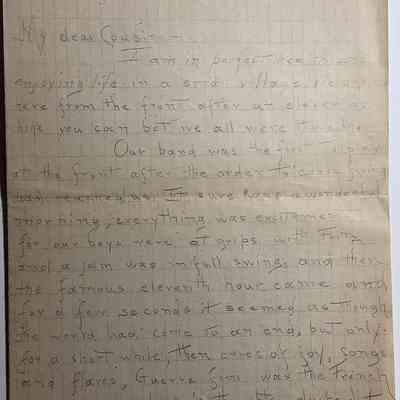 My dear Cousin:-
I am in perfect health and
enjoying life in a village
here from the front after at eleven
you can bet we all were
Our band was the first to play
at the front after the order to cease firing
had reached us. It sure was a wonderful
morning, everything was excitement
for our boys were at grips with Fritz
and a jam was in full swing, and then
the famous eleventh hour came and
for a few seconds it seemed as though
the world had come to an end, but only
for a short while, then cries of joy, songs
and flares, Guerre fini was the French